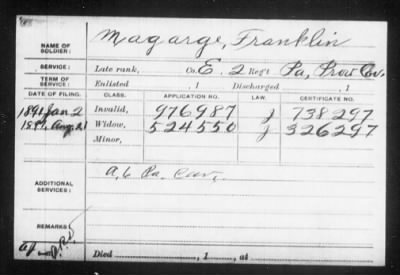 NAME OF SOLDIER: Magarge, Franklin
SERVICE: Late rank, Co. E. 2 Reg't Pa, Prov Cav.
TERM OF SERVICE: Enlisted 1 Discharged , 1
DATE OF FILING. CLASS. APPLICATION NO. LAW. CERTIFICATE NO.
1891 Jan 2 Invalid, 976987 J 738297
Aug. 21 Widow, 524550 J 326297
Minor,
ADDITIONAL SERVICES: A, 6 Pa. Cav,
REMARKS:
Died , 1 , at